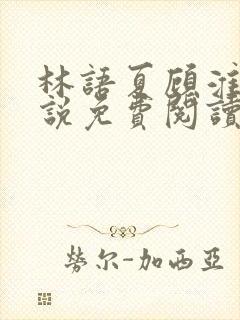 林語夏顧淮
説免費閱讀
勞尔-加西亞